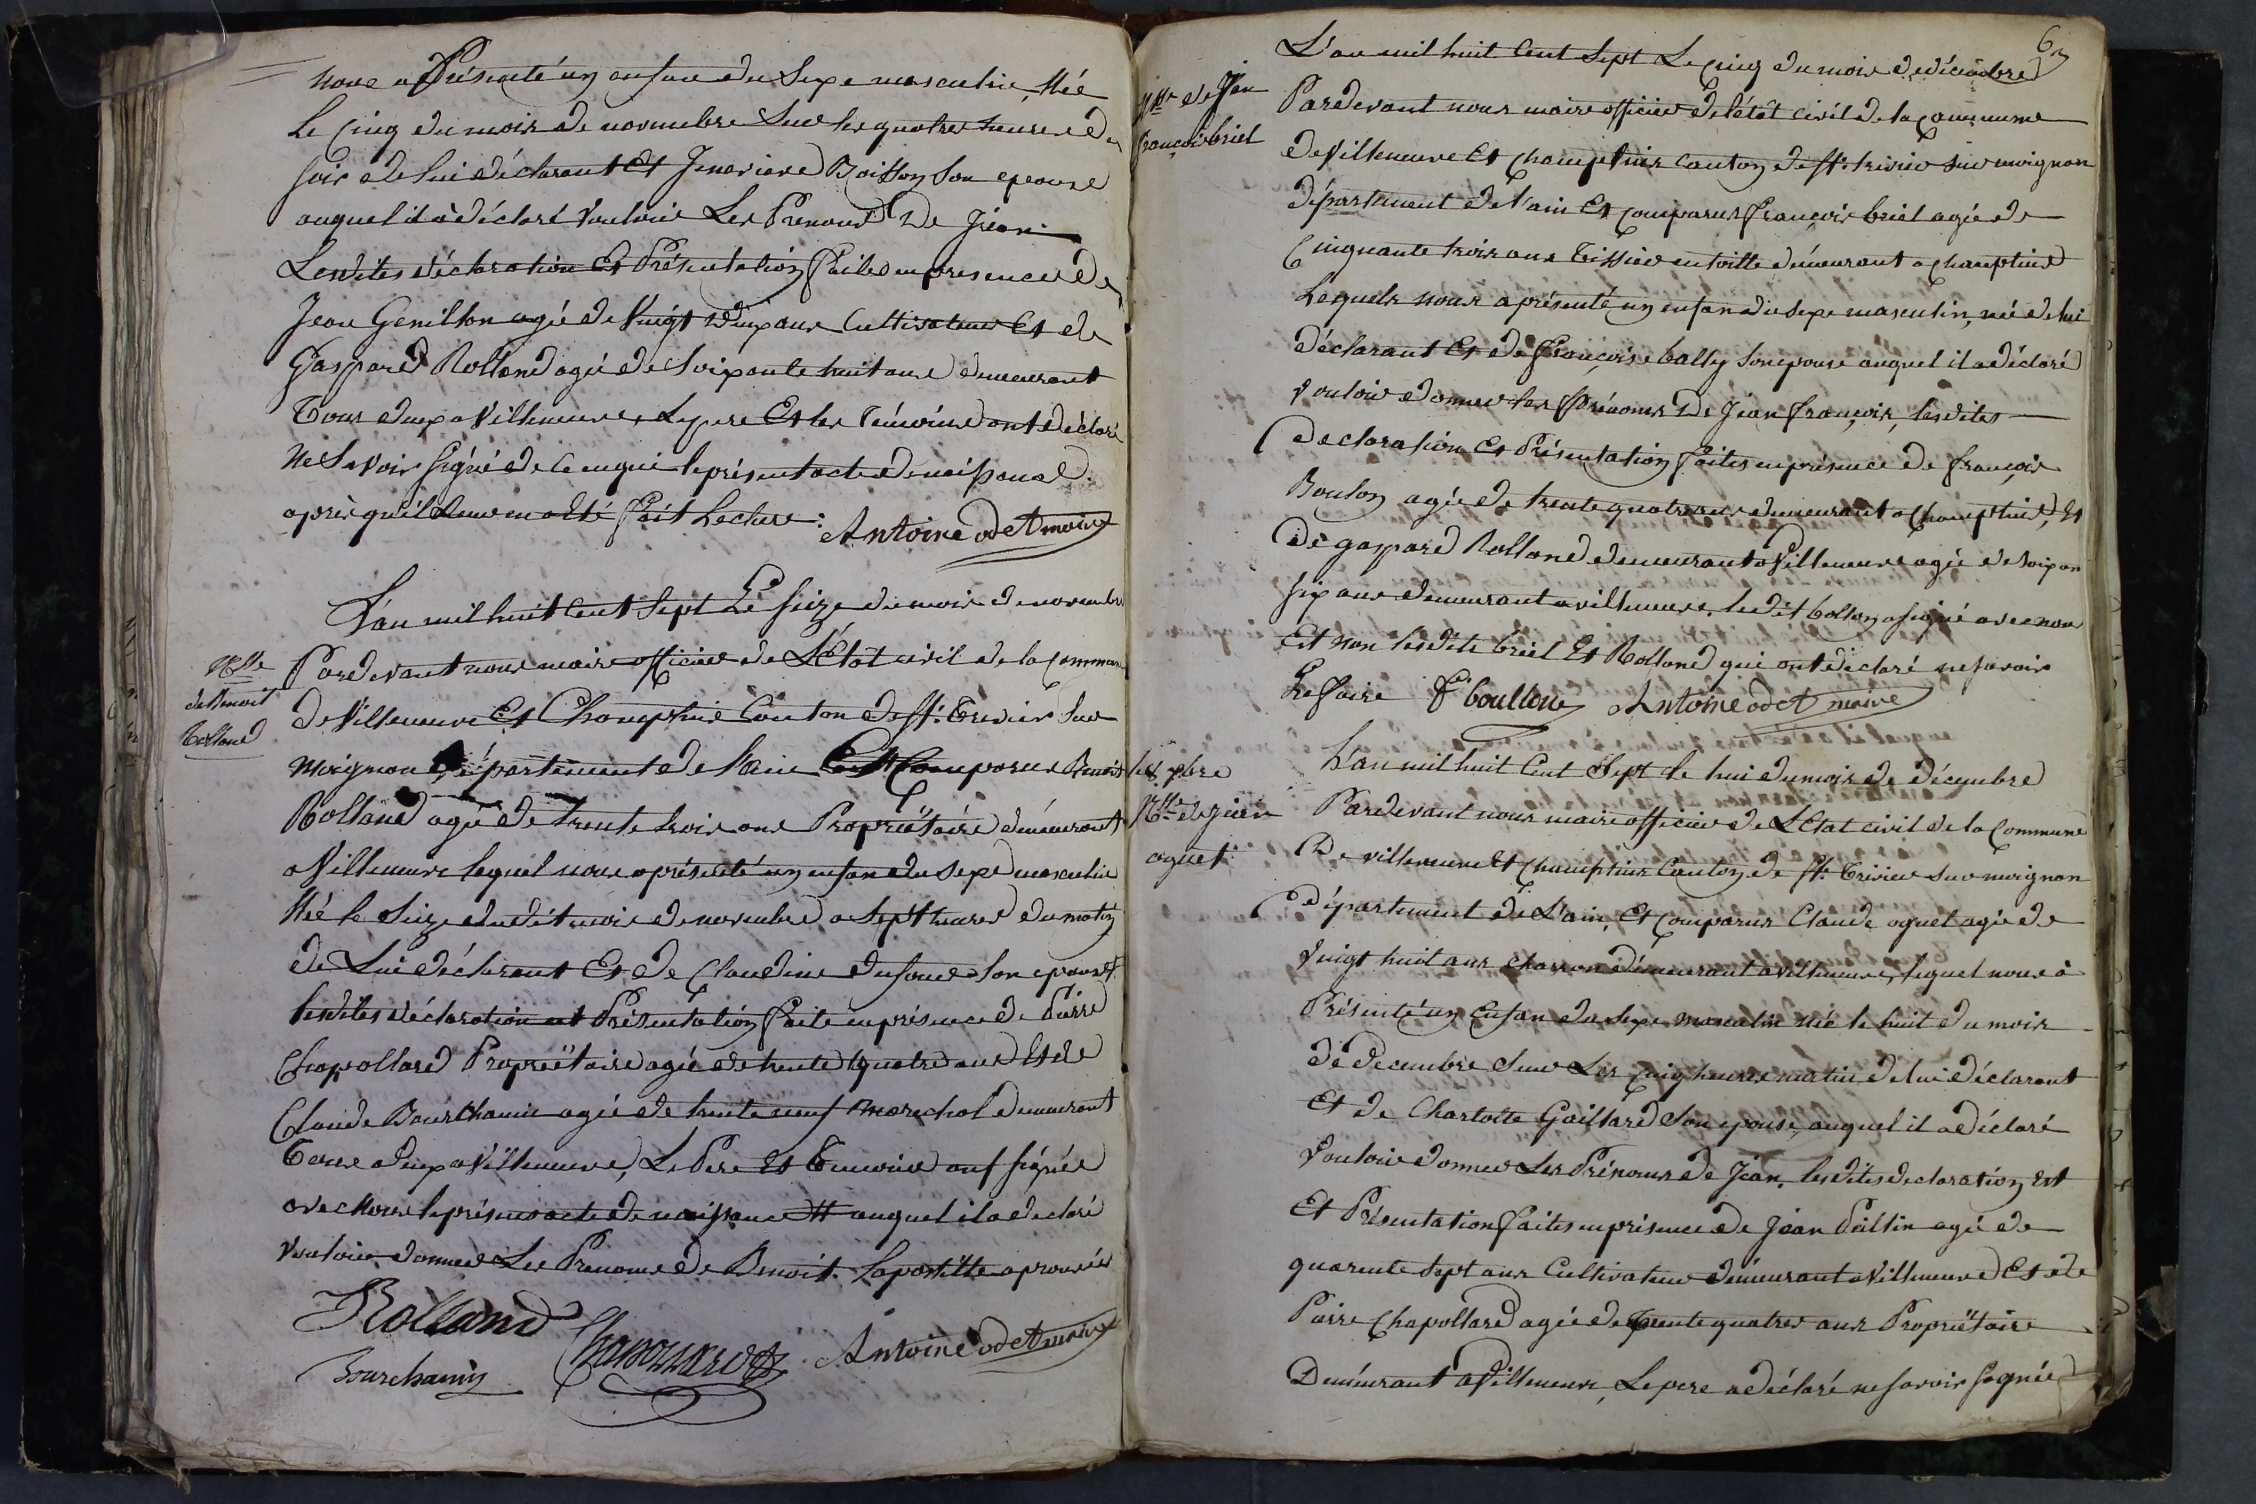 nous a Présenté un enfant du Sexe masculin, Née
Le Cinq du mois de novembre Sur les quatre heures du
soir de lui déclarant Et Jenevieve Boisson Son epouse
auquel il a déclaré vouloir Les Prenoms De Jean
Lesdites déclaration Et Présentation faites en presence de
Jean Genillon agé de vingt deux ans Cultivateur Et de
Gaspard Rolland agé de Soixante huit ans demeurant
Tous deux a Villeneuve, Le pere Et les Témoins ont déclaré
Ne Savoir signé de ce enquis le présent acte de naissance
après qu'il Leur en a Eté fait Lecture: Antoine odet maire
L'an mil huit Cent Sept Le Seize du mois de novembre
Pardevant nous maire officier de L'État civil de la Commune
De Villeneuve Et Champtein Canton de St. Trivier Sur
Moignon département de l'ain Est Comparu Benoit
Rolland agé de trente trois ans Propriétaire demeurant
a Villeneuve lequel nous a présenté un enfan du Sexe masculin
Né le Seize dudit mois de novembre a Sept heures du matin
de Lui déclarant Et de Claudine Dufour Son epouse #
lesdites déclaration et Présentation faite en présence de Pierre
Chapollard Propriétaire agé de trente quatre ans Et de
Claude Bourchanin agé de trente neuf marechal demeurant
Tous deux a Villeneuve, Le Pere Et Temoins ont signés
avec Nous le présent acte de naissance # auquel il a déclaré
vouloir donner Les Prenoms de Benoit. Lapostille aprouvée
Rolland
Chapollard
Antoine odet maire
Bourchanin
Nce
de Benoit
Rolland
6
Nce de Jean
françois briel
L'an mil huit Cent Sept Le Cinq du mois de décembre
Pardevant nous maire officier de l'état civil de la Commune
de Villeneuve Et Champteins Canton de St. trivier sur moignon
département de l'ain Et Comparus françois briel agé de
Cinquante trois ans Tissier en toille demeurant a Champteins
Lequels nous a présenté un enfan du Sexe masculin, né de lui
déclarant Et de françoise bally Son epouse auquel il a déclaré
vouloir donner les Prénoms De Jean françois, lesdites
declaration Et Présentation faites en présence de françois
Boulon agé de trente quatre ans demeurant a Champteins, Et
De gaspard Rolland demeurant a Villeneuve agé de Soixan
six ans demeurant a villeneuve, ledit bollon a signé avec nous
Et non lesdits briel Et Rolland qui ont déclaré ne savoir
Le faire f boullon Antoine odet maire
le 8 xbre
Nce de Jean
oguet
L'an mil huit Cent Sept le hui du mois de décembre
Pardevant nous maire officier de L'Etat civil de la Commune
De villeneuve Et Champteins Canton de St. Trivier sur moignon
département de L'ain, Et Comparus Claude oguet agé de
vingt huit ans charron demeurant a villeneuve, lequel nous à
Présenté un Enfan du Sexe masculin Née le huit du mois
de decembre Sur Les Cinq heures matin de lui déclarant
Et de Charlotte Gaillard Son epouse, auquel il a déclaré
vouloir donner Les Prénoms de Jean, lesdites declaration Est
Et Présentation faites en présence de Jean Peillin agé de
quarente Sept ans Cultivateur demeurant a Villeneuve Et de
Pierre Chapollard agé de trente quatres ans Propriétaire
Demeurant a Villeneuve, Le pere a déclaré ne savoir signée